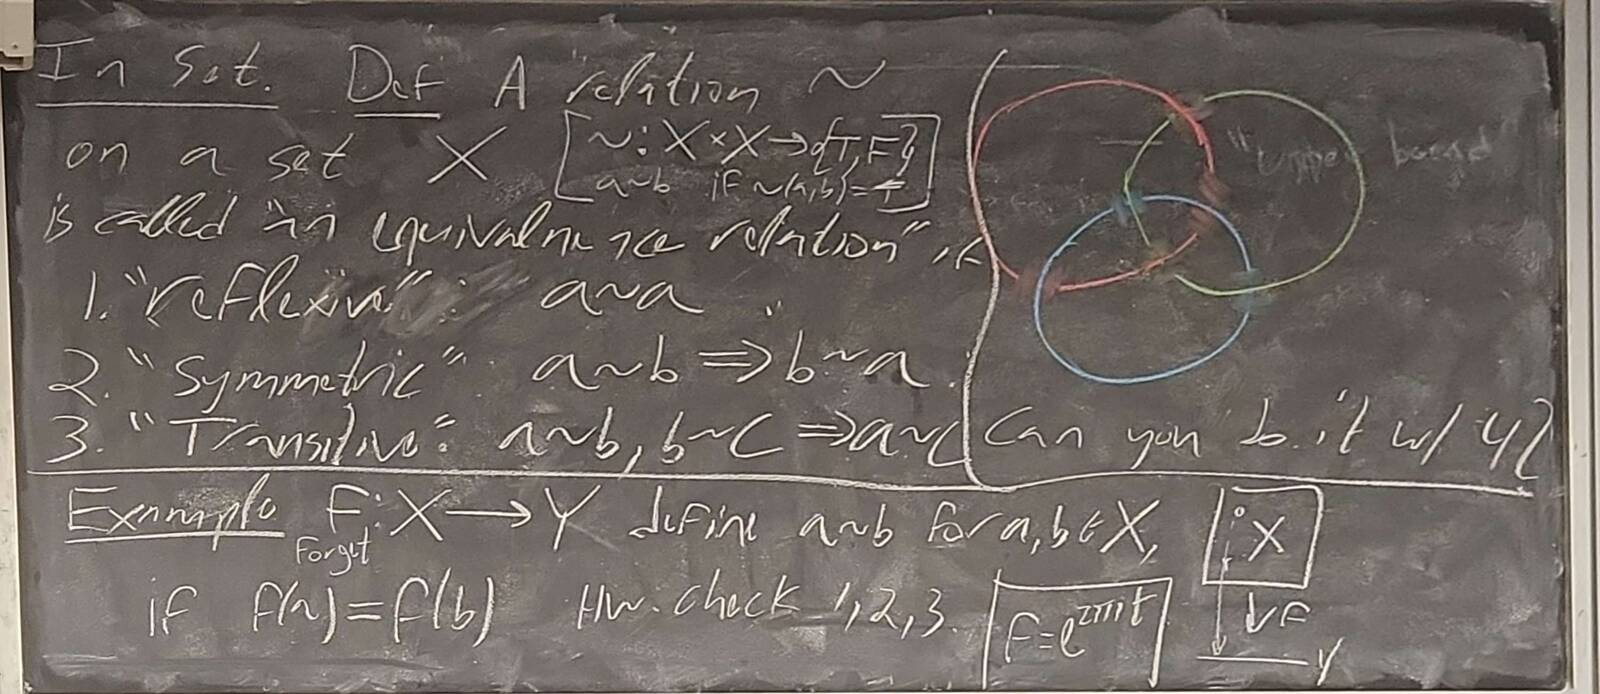 In Set. Def A relation ~
on a set X [~: X × X → {T, F}
a~b if ~(a,b) = T]
is called "an equivalence relation" if
1. "reflexive": a~a
2. "Symmetric": a~b ⇒ b~a.
3. "Transitive": a~b, b~c ⇒ a~c
"upper bound
Can you do it w/ 4?
Example F: X → Y define a~b for a, b ∈ X,
Forget
if f(a) = f(b) HW: check 1, 2, 3.
F = e^{2πit}
X
↓ F
Y